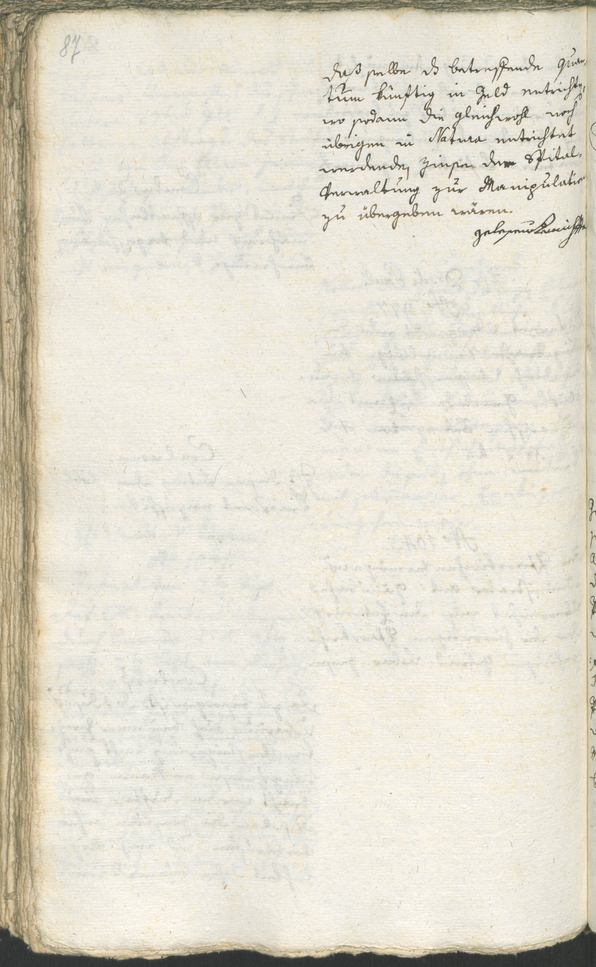 87
daß selbe ds betreffende Quan-
tum künftig in Geld entrichte,
wo sodann die gleichwohl noch
übrigen in Natura entrichtet
werdende Zinse der Spital-
Verwaltung zur Manipulation
zu übergeben wären.